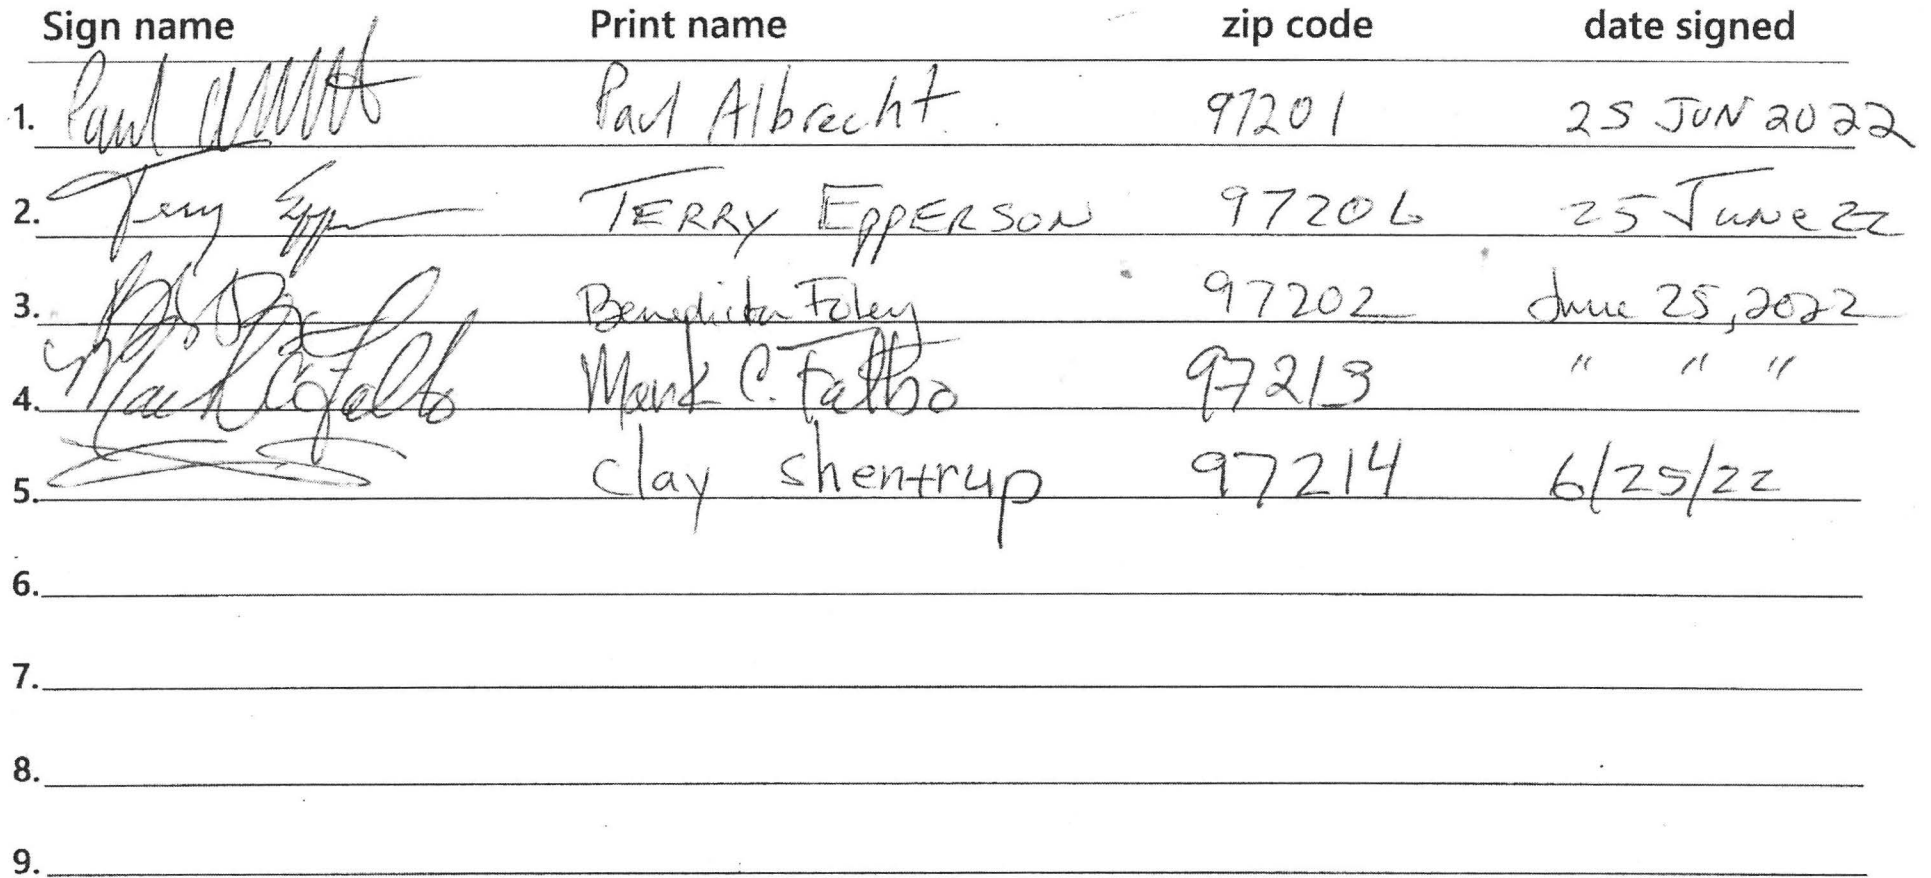 Sign name Print name zip code date signed
1. Paul Paul Albrecht 97201 25 JUN 2022
2. Terry Epp TERRY EPPERSON 97206 25 JUNE 22
3. Benedicta Foley 97202 June 25, 2022
4. Mark C Falbo Mark C. Falbo 97213 " " "
5. Clay Shentrup 97214 6/25/22
6.
7.
8.
9.